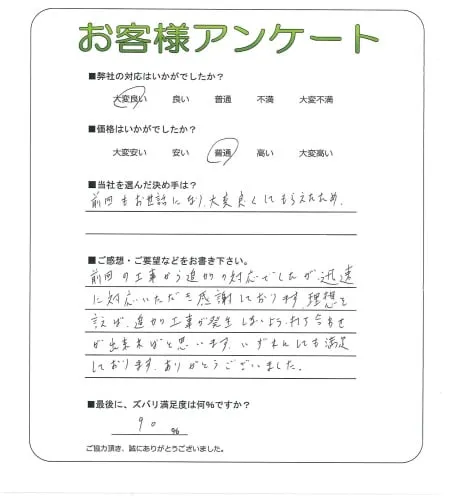 お客様アンケート
■弊社の対応はいかがでしたか？
大変良い　良い　普通　不満　大変不満
■価格はいかがでしたか？
大変安い　安い　普通　高い　大変高い
■当社を選んだ決め手は？
前回もお世話になり、大変良くしてもらえたため、
■ご感想・ご要望などをお書き下さい。
前回の工事から追加の対応でしたが、迅速
に対応いただき感謝しております。理想を
言えば、追加の工事が発生しないよう、打ち合わせ
が出来ればと思います。いずれにしても満足
しております。ありがとうございました。
■最後に、ズバリ満足度は何％ですか？
90 ％
ご協力頂き、誠にありがとうございました。